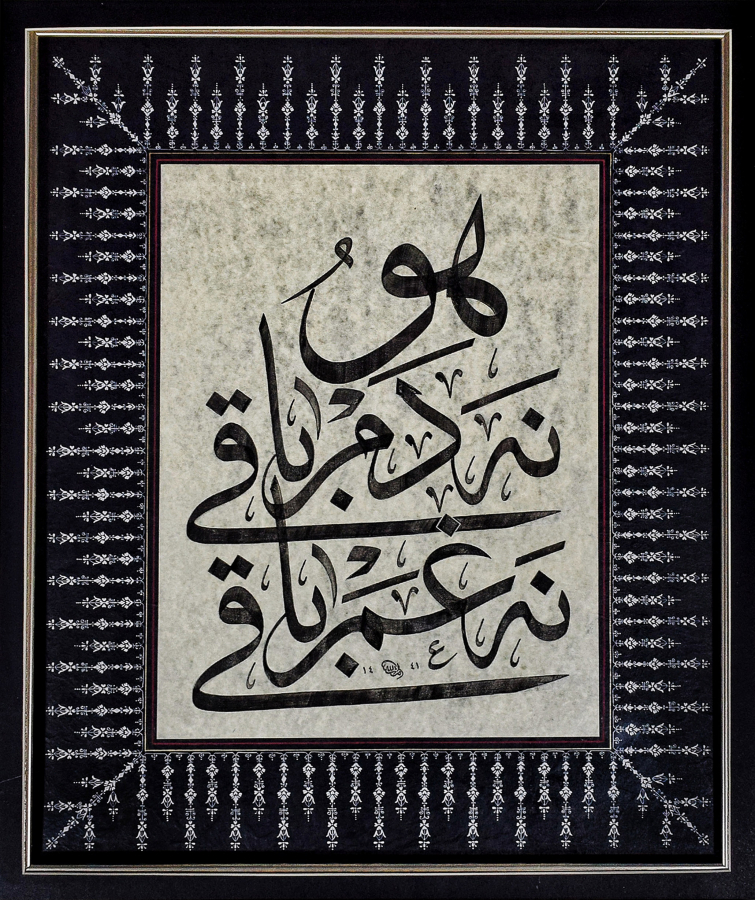 هوُ
نه دم باقى
نه غم باقى
١٤ ٤١